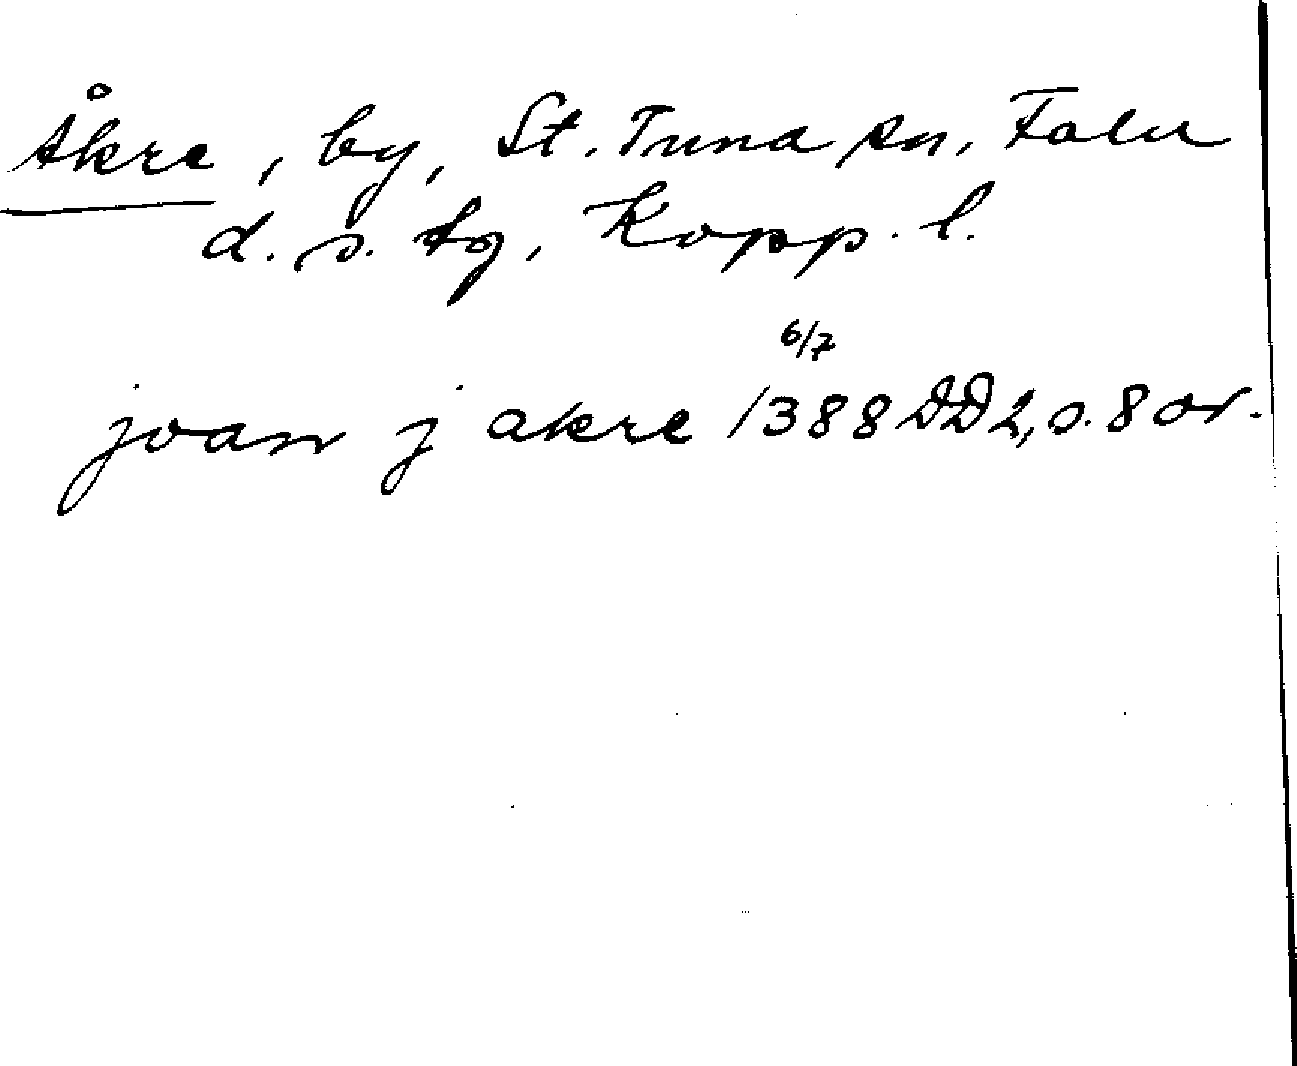 Åkre, by, St. Tuna sn, Falu
d. s. tg, Kopp. l.
6/7
joan j akre 1388 DD2, s. 8 or.